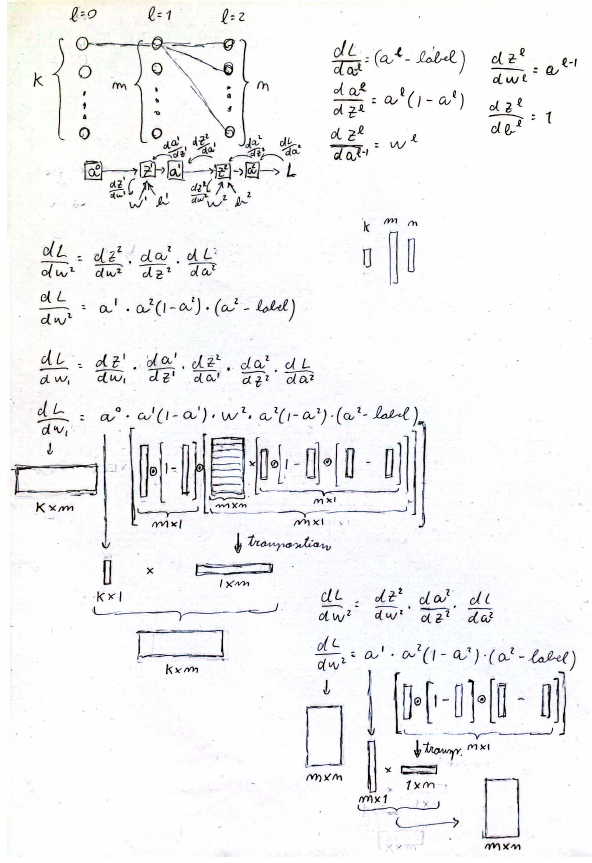 l=0 l=1 l=2
k m n
dL/da^l = (a^l - label)
da^l/dz^l = a^l(1-a^l)
dz^l/da^{l-1} = w^l
dz^l/dw^l = a^{l-1}
dz^l/db^l = 1
da¹/dz¹ dz²/da¹ da²/dz² dL/da²
a⁰ → z¹ → a¹ → z² → a² → L
dz¹/dw¹ w¹ b¹ dz²/dw² w² b²
k m n
dL/dw² = dz²/dw² · da²/dz² · dL/da²
dL/dw² = a¹ · a²(1-a²) · (a² - label)
dL/dw₁ = dz¹/dw₁ · da¹/dz¹ · dz²/da¹ · da²/dz² · dL/da²
dL/dw₁ = a⁰ · a¹(1-a¹) · w² · a²(1-a²) · (a² - label)
[ ⊙ [1- ] ⊙ [ × [ ⊙ [1- ] ⊙ [ - ]]]]
k×m
m×1 m×n m×1
m×1
transposition
k×1 × 1×m
k×m
dL/dw² = dz²/dw² · da²/dz² · dL/da²
dL/dw² = a¹ · a²(1-a²) · (a² - label)
[ ⊙ [1- ] ⊙ [ - ]]
m×1
transp.
m×n
m×1 × 1×n
m×n